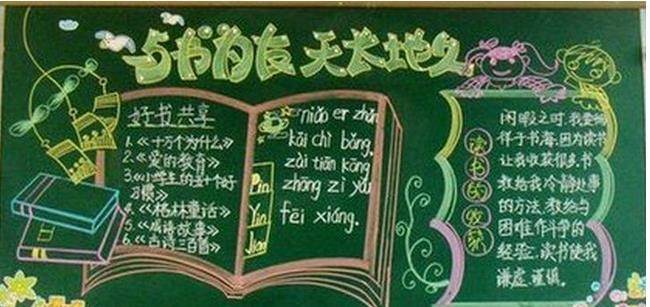 与书为友 天长地久
好书共享
1.《十万个为什么》
2.《爱的教育》
3.《小学生的五十个好
习惯》
4.《格林童话》
5.《成语故事》
6.《古诗三百首》
Pin
Yin
Jiao
niǎo er zhǎn
kāi chì bǎng.
zài tiān kōng
zhōng zì yóu
fēi xiáng.
读书的收获
闲暇之时,我爱徜
徉于书海,因为读书
让我收获很多,书
教给我冷静处事
的方法,教给与
困难作斗争的
经验,读书使我
谦虚,谨慎。